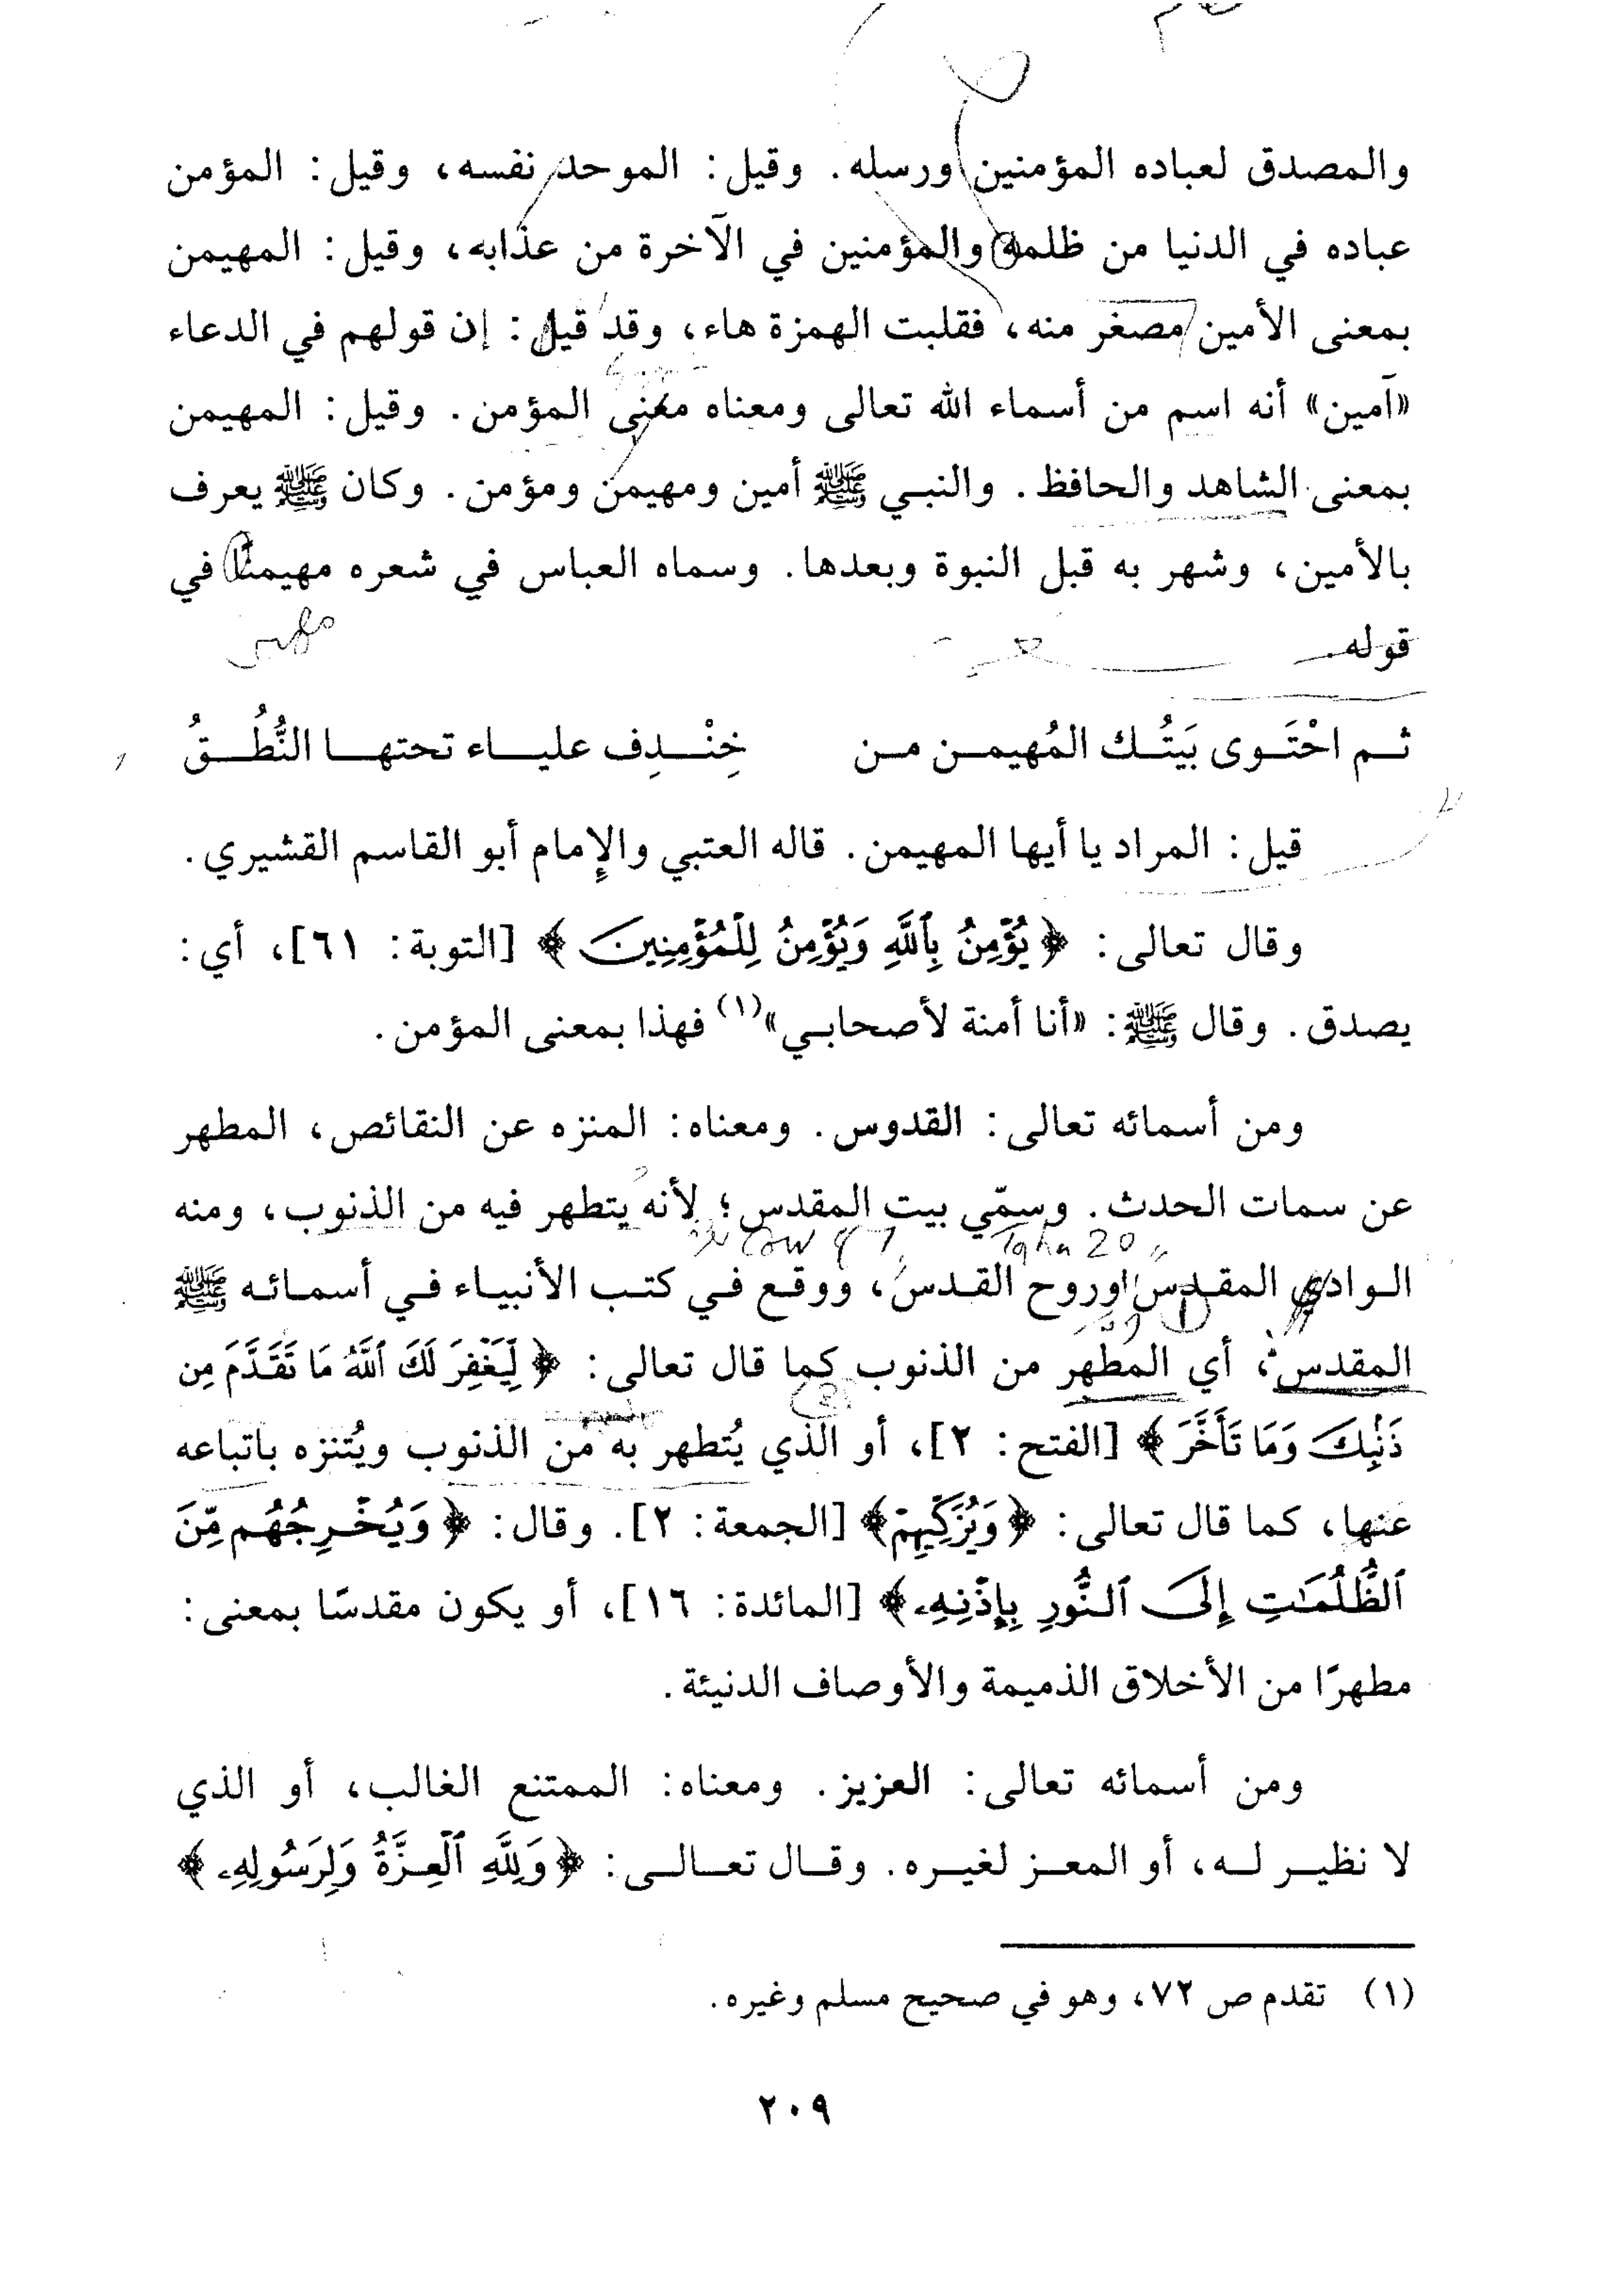 والمصدق لعباده المؤمنين ورسله. وقيل: الموحد نفسه، وقيل: المؤمن
عباده في الدنيا من ظلمه والمؤمنين في الآخرة من عذابه، وقيل: المهيمن
بمعنى الأمين مصغر منه، فقلبت الهمزة هاء، وقد قيل: إن قولهم في الدعاء
«آمين» أنه اسم من أسماء الله تعالى ومعناه معنى المؤمن. وقيل: المهيمن
بمعنى الشاهد والحافظ. والنبي ﷺ أمين ومهيمن ومؤمن. وكان ﷺ يعرف
بالأمين، وشهر به قبل النبوة وبعدها. وسماه العباس في شعره مهيمنًا في
قوله.
ثم احْتَوى بَيتُك المُهيمن من خِنْدِف علياء تحتها النُّطُقُ
قيل: المراد يا أيها المهيمن. قاله العتبي والإمام أبو القاسم القشيري.
وقال تعالى: ﴿يُؤْمِنُ بِٱللَّهِ وَيُؤْمِنُ لِلْمُؤْمِنِينَ﴾ [التوبة: ٦١]، أي:
يصدق. وقال ﷺ: «أنا أمنة لأصحابي»(١) فهذا بمعنى المؤمن.
ومن أسمائه تعالى: القدوس. ومعناه: المنزه عن النقائص، المطهر
عن سمات الحدث. وسمّي بيت المقدس؛ لأنه يتطهر فيه من الذنوب، ومنه
Taha 20
الوادي المقدس وروح القدس، ووقع في كتب الأنبياء في أسمائه ﷺ
المقدس، أي المطهر من الذنوب كما قال تعالى: ﴿لِّيَغْفِرَ لَكَ ٱللَّهُ مَا تَقَدَّمَ مِن
ذَنۢبِكَ وَمَا تَأَخَّرَ﴾ [الفتح: ٢]، أو الذي يُتطهر به من الذنوب ويُتنزه باتباعه
عنها، كما قال تعالى: ﴿وَيُزَكِّيهِمْ﴾ [الجمعة: ٢]. وقال: ﴿وَيُخْرِجُهُم مِّنَ
ٱلظُّلُمَٰتِ إِلَى ٱلنُّورِ بِإِذْنِهِۦ﴾ [المائدة: ١٦]، أو يكون مقدسًا بمعنى:
مطهرًا من الأخلاق الذميمة والأوصاف الدنيئة.
ومن أسمائه تعالى: العزيز. ومعناه: الممتنع الغالب، أو الذي
لا نظير له، أو المعز لغيره. وقال تعالى: ﴿وَلِلَّهِ ٱلْعِزَّةُ وَلِرَسُولِهِۦ﴾
(١) تقدم ص ٧٢، وهو في صحيح مسلم وغيره.
٢٠٩